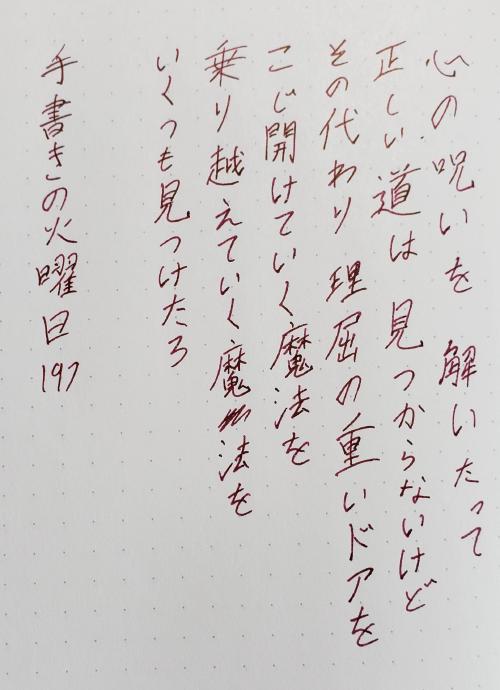 心の呪いを　解いたって
正しい道は　見つからないけど
その代わり　理屈の重いドアを
こじ開けていく魔法を
乗り越えていく魔法を
いくつも見つけたろ
手書きの火曜日197